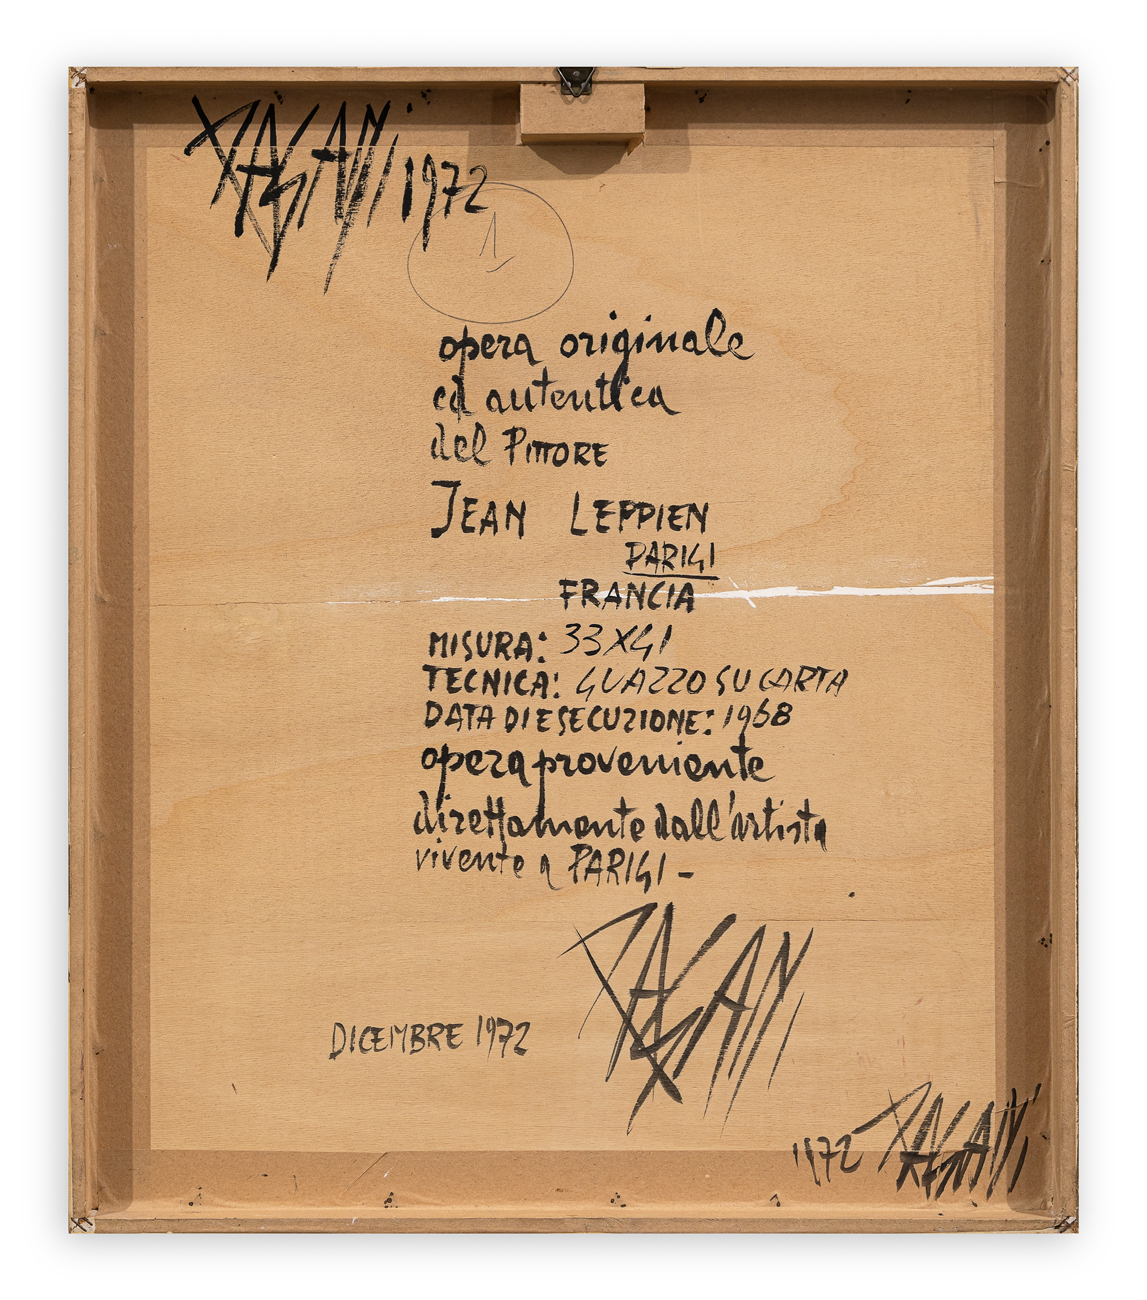 PAGANI 1972
1
opera originale
ed autentica
del PITTORE
JEAN LEPPIEN
PARIGI
FRANCIA
MISURA: 33X41
TECNICA: GUAZZO SU CARTA
DATA DI ESECUZIONE: 1968
opera proveniente
direttamente dall'artista
vivente a PARIGI -
PAGANI
DICEMBRE 1972
1972 PAGANI